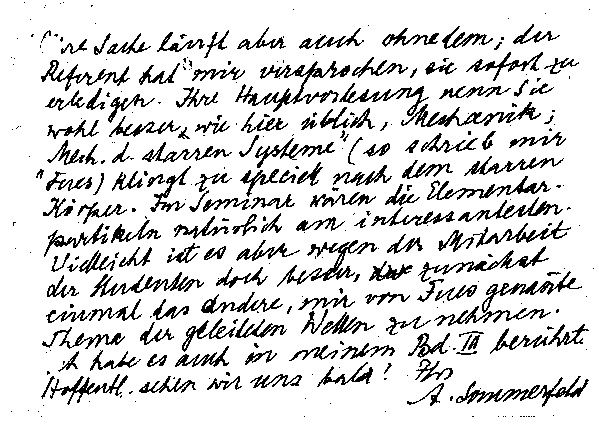 Ihre Sache läuft aber auch ohnedem; der
Referent hat mir versprochen, sie sofort zu
erledigen. Ihre Hauptvorlesung nennen Sie
wohl besser, wie hier üblich, „Mechanik";
Mech. d. starren Systeme" (so schrieb mir
Fues) klingt zu speciell nach dem starren
Körper. Im Seminar wären die Elementar-
partikeln natürlich am interessantesten.
Vielleicht ist es aber wegen der Mitarbeit
der Studenten doch besser, zunächst
einmal das andere, mir von Fues genannte
Thema der geleiteten Wellen zu nehmen.
Ich habe es auch in meinem Bd. III berührt.
Hoffentl. sehen wir uns bald! Ihr
A. Sommerfeld